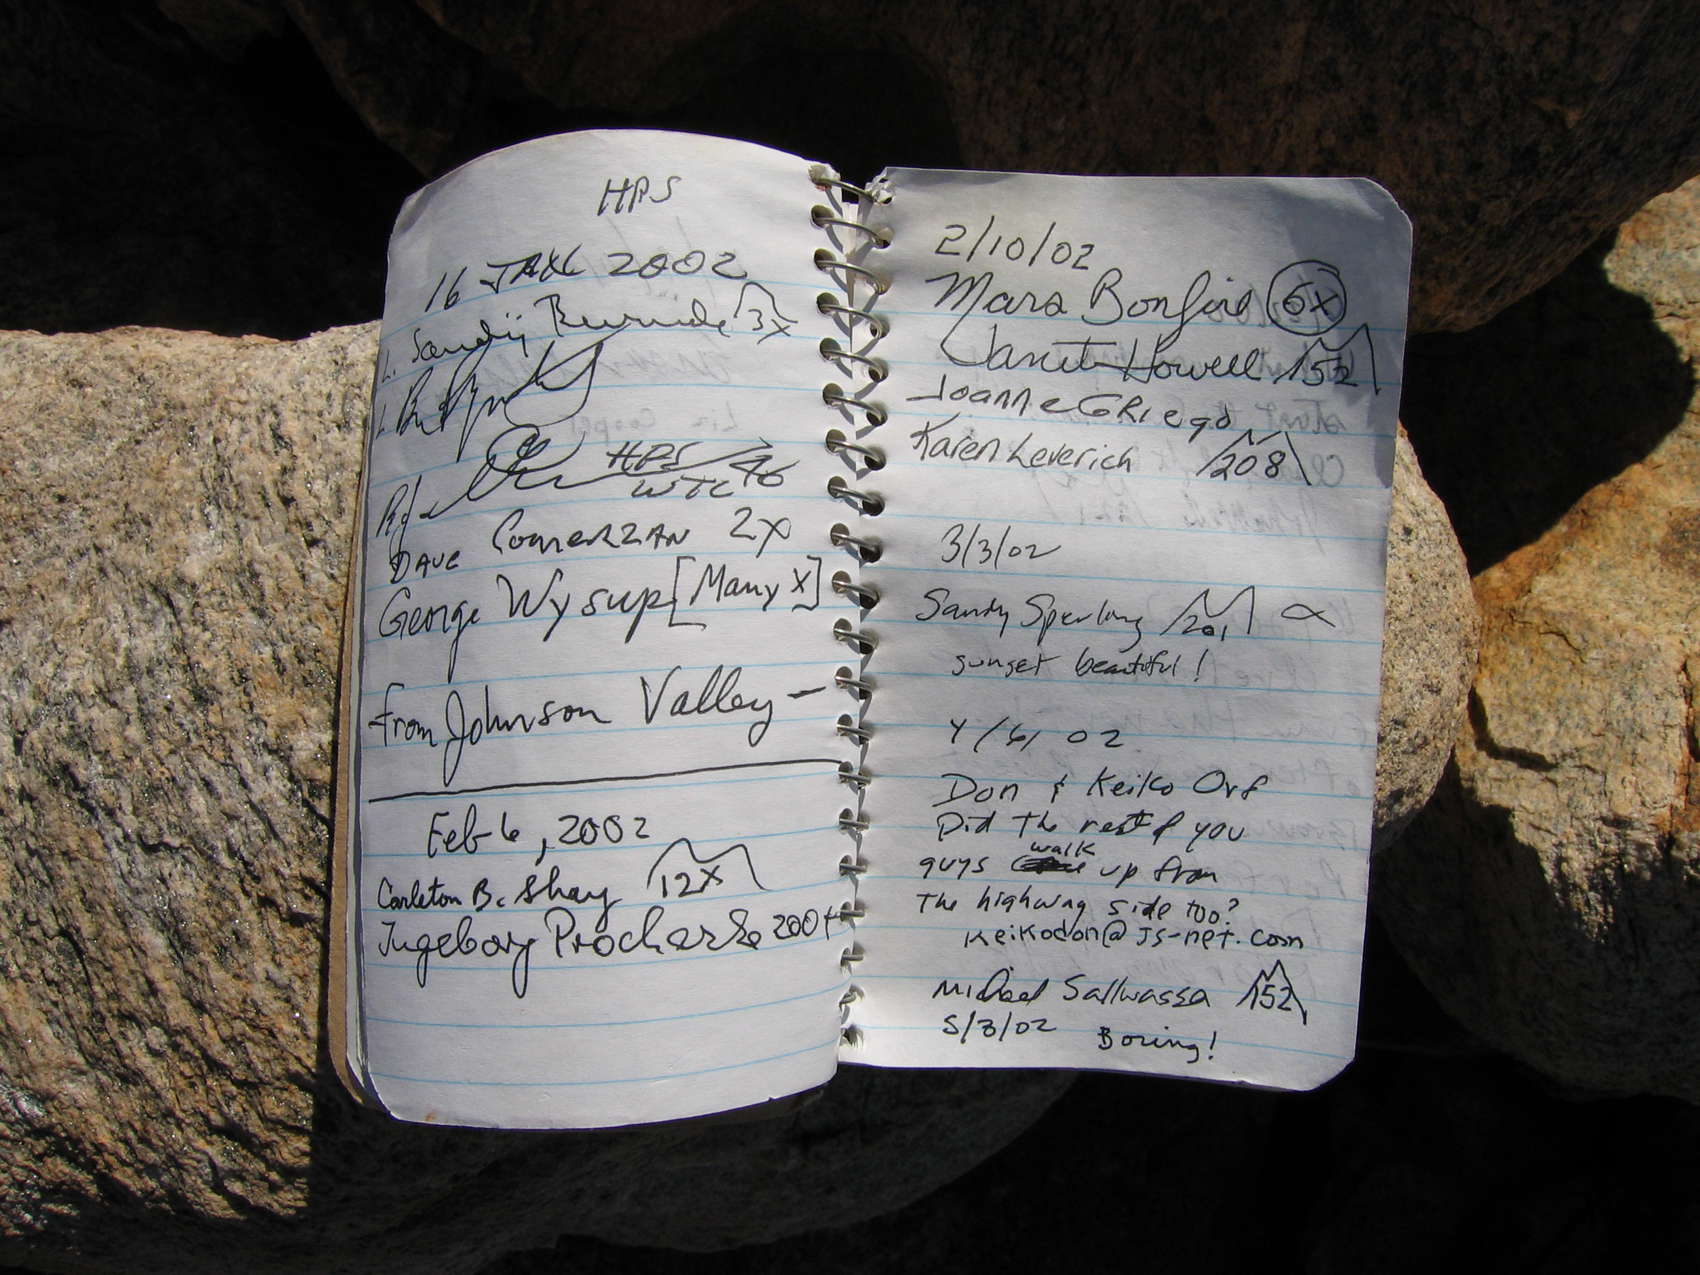 HPS
16 JAN 2002
L. Sandy 3x
HPS
WTC 96
DAVE ComerzAN 2x
George Wysup [Many x]
From Johnson Valley -
Feb-6, 2002
Carleton B. Shay 12x
Ingeborg Prochazka 200+
2/10/02
Mars Bonfire 6x
Janet Howell 152
Joanne GRiego
Karen Leverich 208
3/3/02
Sandy Sperling 201
sunset beautiful!
4/6/02
Don & Keiko Orf
Did the rest of you
guys walk up from
the highway side too?
keikodon@js-net.com
Michael Sallwassa 152
5/3/02 Boring!